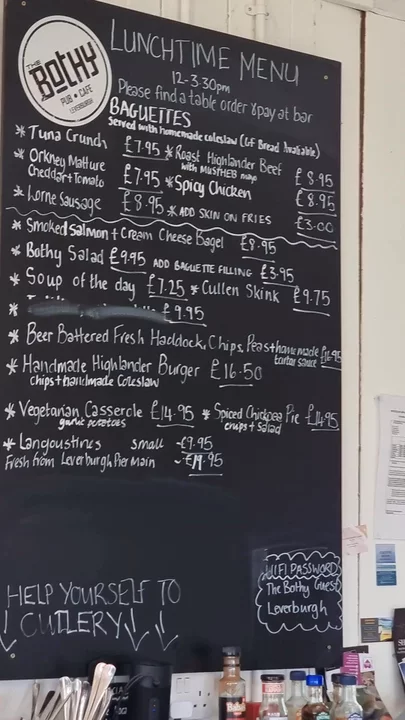 THE
BOTHY
PUB • CAFE
LEVERBURGH
LUNCHTIME MENU
12-3.30pm
Please find a table order & pay at bar
BAGUETTES
Served with homemade coleslaw (GF Bread Available)
* Tuna Crunch £7.95
* Roast Highlander Beef with MUSTHEB mayo £8.95
* Orkney Mature Cheddar + Tomato £7.95
* Spicy Chicken £8.95
* Lorne Sausage £8.95
* ADD SKIN ON FRIES £3.00
* Smoked Salmon + Cream Cheese Bagel £8.95
* Bothy Salad £9.95 ADD BAGUETTE FILLING £3.95
* Soup of the day £7.25 * Cullen Skink £9.75
* £9.95
* Beer Battered Fresh Haddock, Chips, Peas + home made tartar sauce
* Handmade Highlander Burger £16.50
chips + handmade Coleslaw
* Vegetarian Casserole £14.95 * Spiced Chickpea Pie £14.95
garlic potatoes chips + Salad
* Langoustines small - £9.95
Fresh from Leverburgh Pier Main - £19.95
HELP YOURSELF TO
CUTLERY
WIFI PASSWORD
The Bothy Guest
Leverburgh